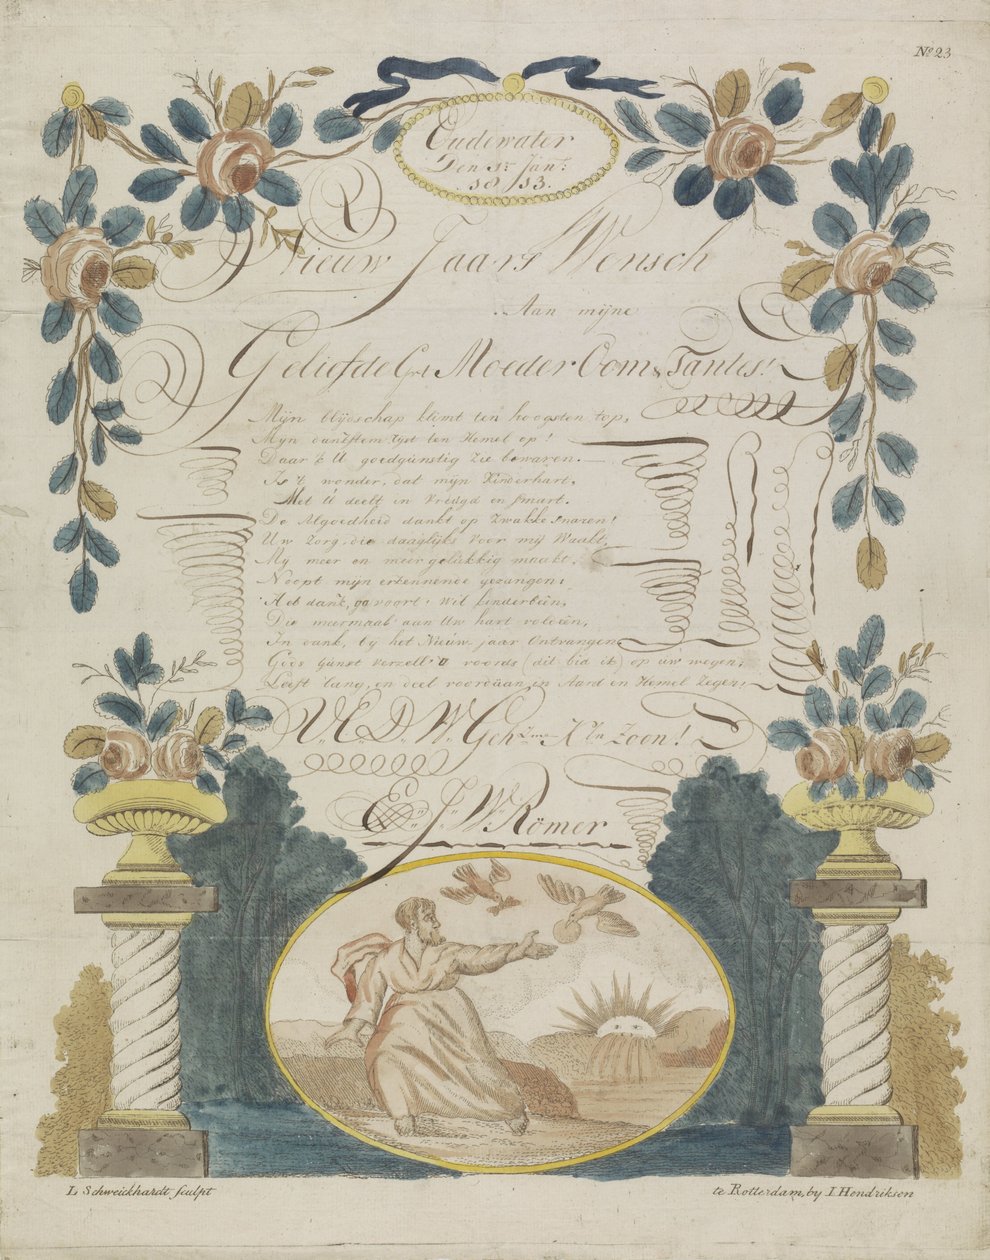 No 23
Oudewater
Den 1st Jant.
1813.
Nieuw Jaars Wensch
Aan mijne
Geliefde Grt Moeder Oom & Tantes!
Mijn blijdschap klimt ten hoogsten top,
Mijn danktem rijst ten Hemel op!
Daar 'k U goedgunstig zie bewaren.
Is 't wonder, dat mijn Kinderhart,
Met U deelt in Vreugd en smart.
De Algoedheid dankt op zwakke snaren!
Uw zorg, die daaglijks voor mij Waakt,
My meer en meer gelukkig maakt,
Noopt mijn erkennende gezangen:
Heb dank, go voort, wil kinderbeên,
Die meermaal aan Uw hart voldeên,
In dank, bij het Nieuw jaar Ontvangen
Gods Gunst verzell' U voords (dit bid ik) op uw wegen,
Leeft lang, en deel voordäan in Aard en Hemel Zegen;
U.E.D.W. Geh. Kln zoon!
E. J. W. Römer
L Schweickhardt sculpt
te Rotterdam, by I. Hendriksen